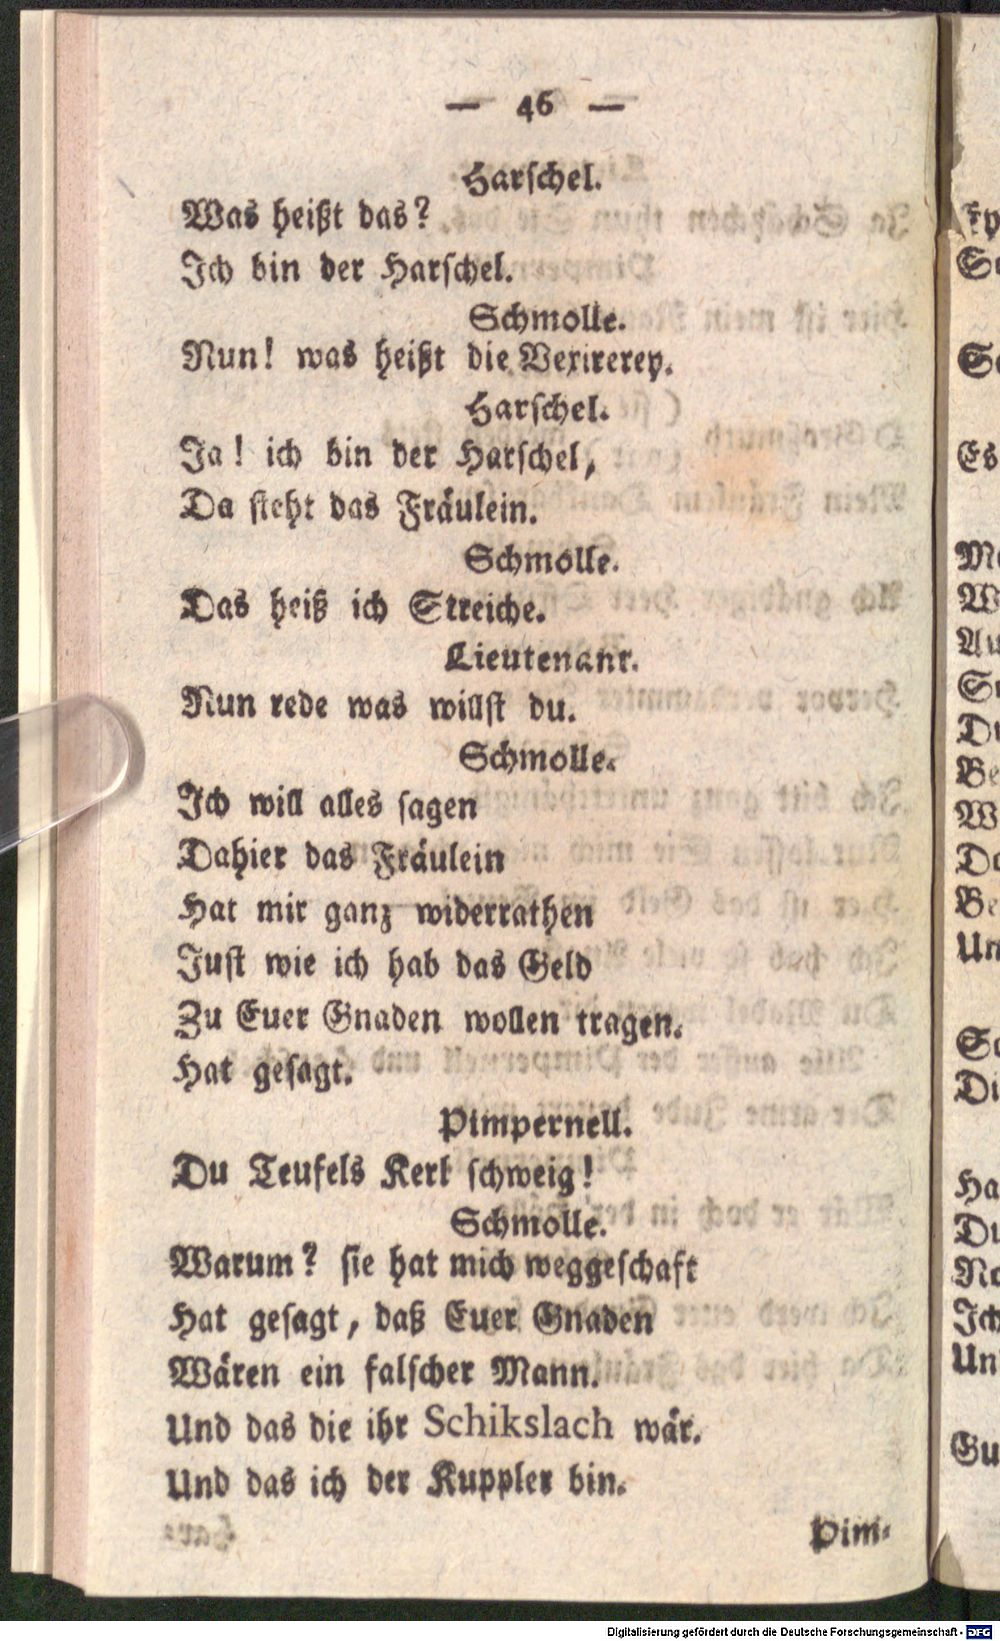 — 46 —
Harſchel.
Was heißt das?
Ich bin der Harſchel.
Schmolle.
Nun! was heißt die Vexirerey.
Harſchel.
Ja! ich bin der Harſchel,
Da ſteht das Fräulein.
Schmolle.
Das heiß ich Streiche.
Lieutenant.
Nun rede was willſt du.
Schmolle.
Ich will alles ſagen
Dahier das Fräulein
Hat mir ganz widerrathen
Juſt wie ich hab das Geld
Zu Euer Gnaden wollen tragen.
Hat geſagt.
Pimpernell.
Du Teufels Kerl ſchweig!
Schmolle.
Warum? ſie hat mich weggeſchaft
Hat geſagt, daß Euer Gnaden
Wären ein falſcher Mann.
Und das die ihr Schikslach wär.
Und das ich der Kuppler bin.
Pim-
Digitalisierung gefördert durch die Deutsche Forschungsgemeinschaft - DFG